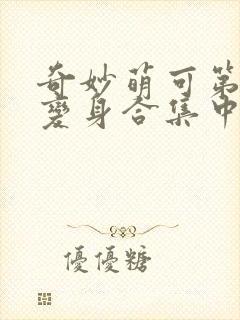 奇妙萌可第
變身合集中
優優糖